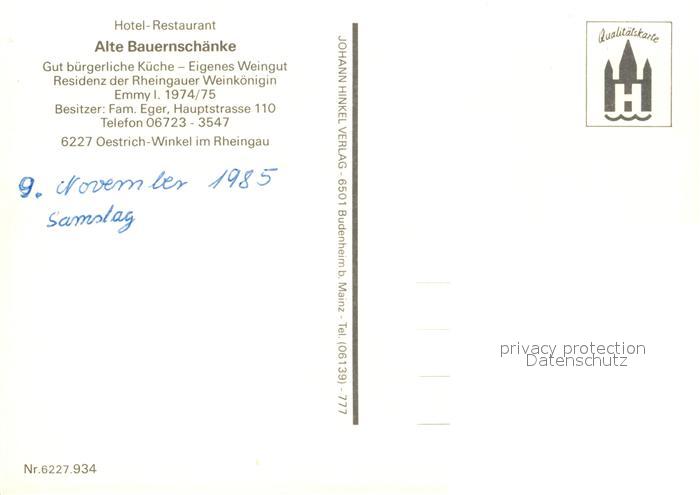 Hotel-Restaurant
Alte Bauernschänke
Gut bürgerliche Küche – Eigenes Weingut
Residenz der Rheingauer Weinkönigin
Emmy I. 1974/75
Besitzer: Fam. Eger, Hauptstrasse 110
Telefon 06723 - 3547
6227 Oestrich-Winkel im Rheingau
9. November 1985
Samstag
Nr.6227.934
JOHANN HINKEL VERLAG - 6501 Budenheim b. Mainz - Tel. (06139) - 777
Qualitätskarte
H
privacy protection
Datenschutz